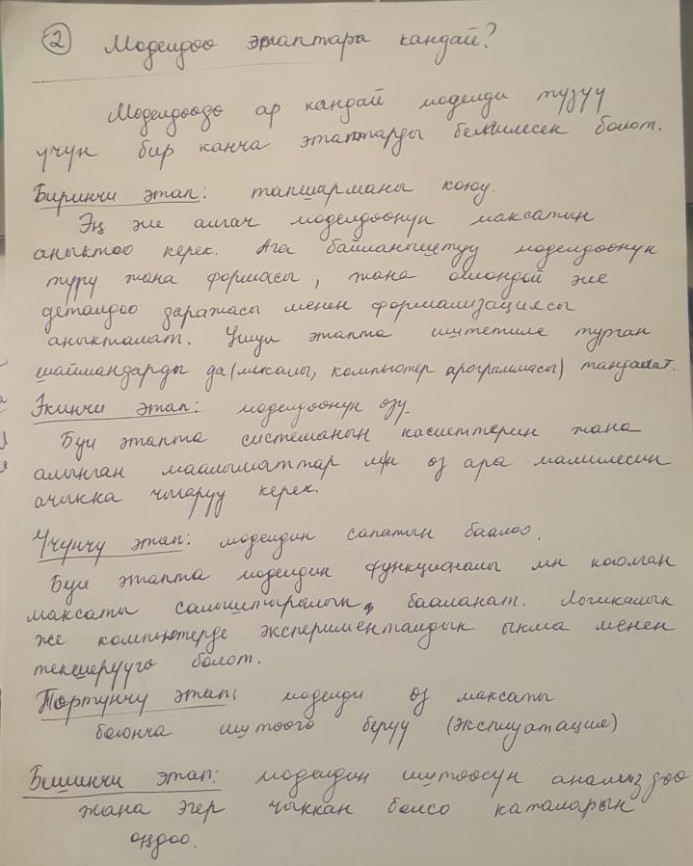 ② Моделдоо этаптары кандай?
Моделдөөдө ар кандай моделди түзүү
үчүн бир канча этаптарды белгилесек болот.
Биринчи этап: тапшырманы коюу.
Эң эле алгач моделдөөнүн максатын
аныктоо керек. Ага байланыштуу моделдөөнүн
түрү жана формасы, жана ошондой эле
деталдоо даражасы менен формализациясы
аныкталат. Ушул этапта иштетиле турган
шаймандарды да (мисалы, компьютер программасы) тандалат.
Экинчи этап: моделдөөнүн өзү.
Бул этапта системанын касиеттерин жана
алынган маалыматтар мн өз ара мамилесин
ачыкка чыгаруу керек.
Үчүнчү этап: моделдин сапатын баалоо.
Бул этапта моделдин функционалы мн коюлган
максаты салыштыралып, бааланат. Логикалык
же компьютерде эксперименталдык ыкма менен
текшерүүгө болот.
Төртүнчү этап: моделди өз максаты
боюнча иштөөгө берүү (эксплуатация)
Бешинчи этап: моделдин иштөөсүн анализдөө
жана эгер чыккан болсо каталарын
оңдоо.